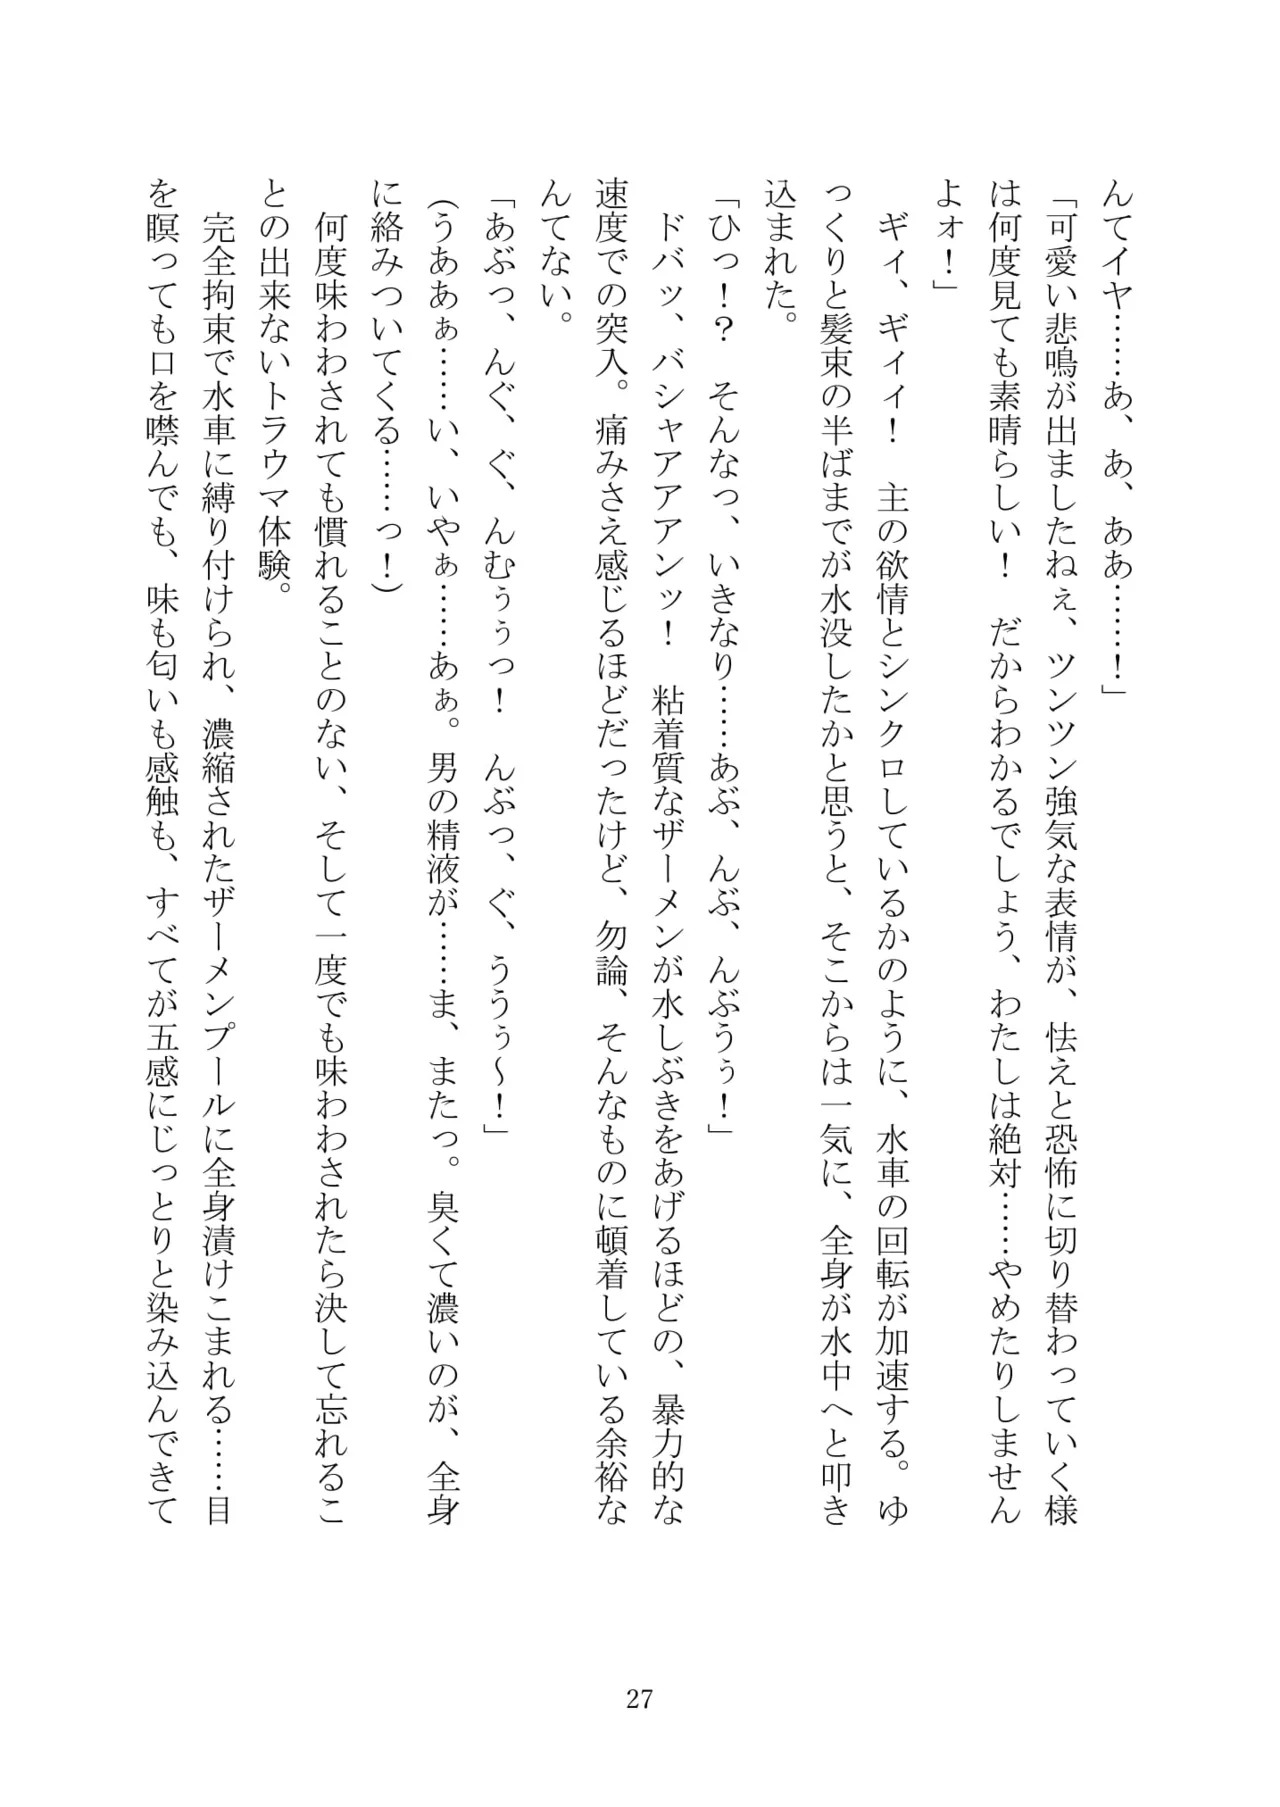 んてイヤ……あ、あ、ああ……！」
「可愛い悲鳴が出ましたねぇ、ツンツン強気な表情が、怯えと恐怖に切り替わっていく様
は何度見ても素晴らしい！　だからわかるでしょう、わたしは絶対……やめたりしません
よォ！」
　ギィ、ギィィ！　主の欲情とシンクロしているかのように、水車の回転が加速する。ゆ
っくりと髪束の半ばまでが水没したかと思うと、そこからは一気に、全身が水中へと叩き
込まれた。
「ひっ！？　そんなっ、いきなり……あぶ、んぶ、んぶうぅ！」
　ドバッ、バシャアアアンッ！　粘着質なザーメンが水しぶきをあげるほどの、暴力的な
速度での突入。痛みさえ感じるほどだったけど、勿論、そんなものに頓着している余裕な
んてない。
「あぶっ、んぐ、ぐ、んむぅぅっ！　んぶっ、ぐ、ううぅ～！」
（うあぁぁ……い、いやぁ……あぁ。男の精液が……ま、またっ。臭くて濃いのが、全身
に絡みついてくる……っ！）
　何度味わわされても慣れることのない、そして一度でも味わわされたら決して忘れるこ
との出来ないトラウマ体験。
　完全拘束で水車に縛り付けられ、濃縮されたザーメンプールに全身漬けこまれる……目
を瞑っても口を噤んでも、味も匂いも感触も、すべてが五感にじっとりと染み込んできて
27